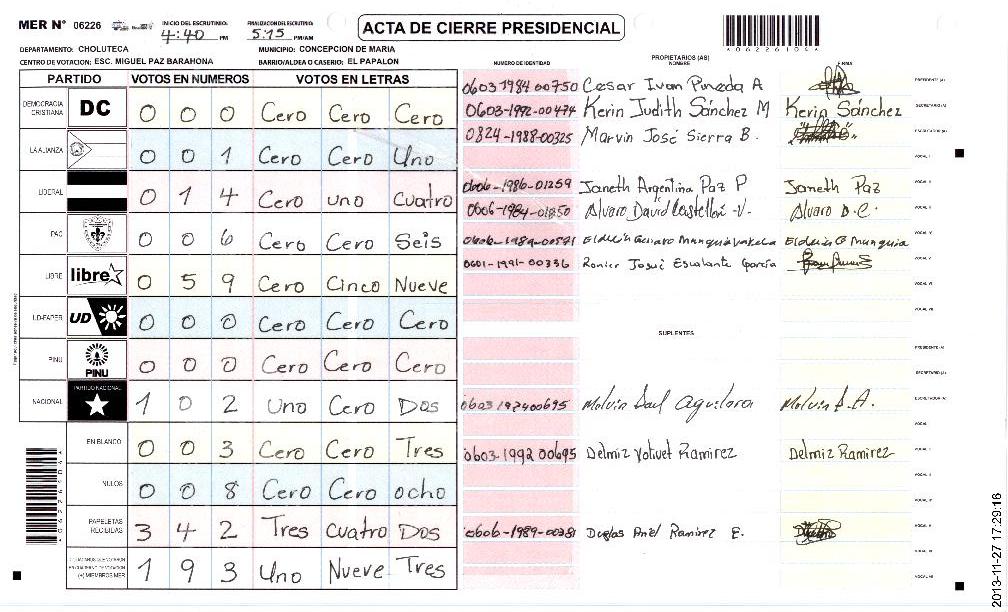 MER N° 06226
INICIO DEL ESCRUTINIO: 4:40 PM
FINALIZACION DEL ESCRUTINIO: 5:15 PM/AM
ACTA DE CIERRE PRESIDENCIAL
06226104
DEPARTAMENTO: CHOLUTECA
MUNICIPIO: CONCEPCION DE MARIA
CENTRO DE VOTACION: ESC. MIGUEL PAZ BARAHONA
BARRIO/ALDEA O CASERIO: EL PAPALON
NUMERO DE IDENTIDAD
PROPIETARIOS (AS)
NOMBRE
FIRMA
PARTIDO VOTOS EN NUMEROS VOTOS EN LETRAS
0603 1984 00750 Cesar Ivan Pineda A PRESIDENTE (A)
DEMOCRACIA CRISTIANA DC 0 0 0 Cero Cero Cero
0603-1992-00474 Kerin Judith Sánchez M Kerin Sánchez SECRETARIO (A)
0824-1988-00325 Marvin José Sierra B. ESCRUTADOR (A)
LA ALIANZA 0 0 1 Cero Cero Uno
VOCAL I
LIBERAL 0 1 4 Cero uno Cuatro
0606-1986-01259 Janeth Argentina Paz P Janeth Paz VOCAL II
0606-1984-01850 Alvaro David Alvaro D.C.
PAC 0 0 6 Cero Cero Seis
0606-1989-00571 Munguia Munguia VOCAL IV
LIBRE libre 0 5 9 Cero Cinco Nueve
0601-1991-00336 Ronier Josué Escalante García VOCAL V
VOCAL VI
UD-FAPER UD 0 0 0 Cero Cero Cero
VOCAL VII
SUPLENTES
PINU PINU 0 0 0 Cero Cero Cero
PRESIDENTE (A)
SECRETARIO (A)
NACIONAL PARTIDO NACIONAL 1 0 2 Uno Cero Dos
Melvin ESCRUTADOR (A)
VOCAL I
EN BLANCO 0 0 3 Cero Cero Tres
0603-1992 00695 Delmiz Yolivet Ramirez Delmiz Ramirez VOCAL II
NULOS 0 0 8 Cero Cero ocho
PAPELETAS RECIBIDAS 3 4 2 Tres cuatro Dos
0606-1989-00381 Ramirez E. VOCAL V
VOCAL VI
(+) MIEMBROS MER 1 9 3 Uno Nueve Tres
VOCAL VII
2013-11-27 17:29:16